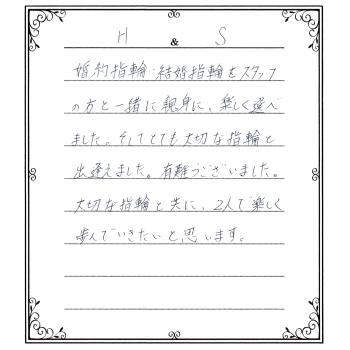 H & S
婚約指輪・結婚指輪をスタッフ
の方と一緒に親身に、楽しく選べ
ました。そしてとても大切な指輪と
出逢えました。有難うございました。
大切な指輪と共に、2人で楽しく
歩んでいきたいと思います。